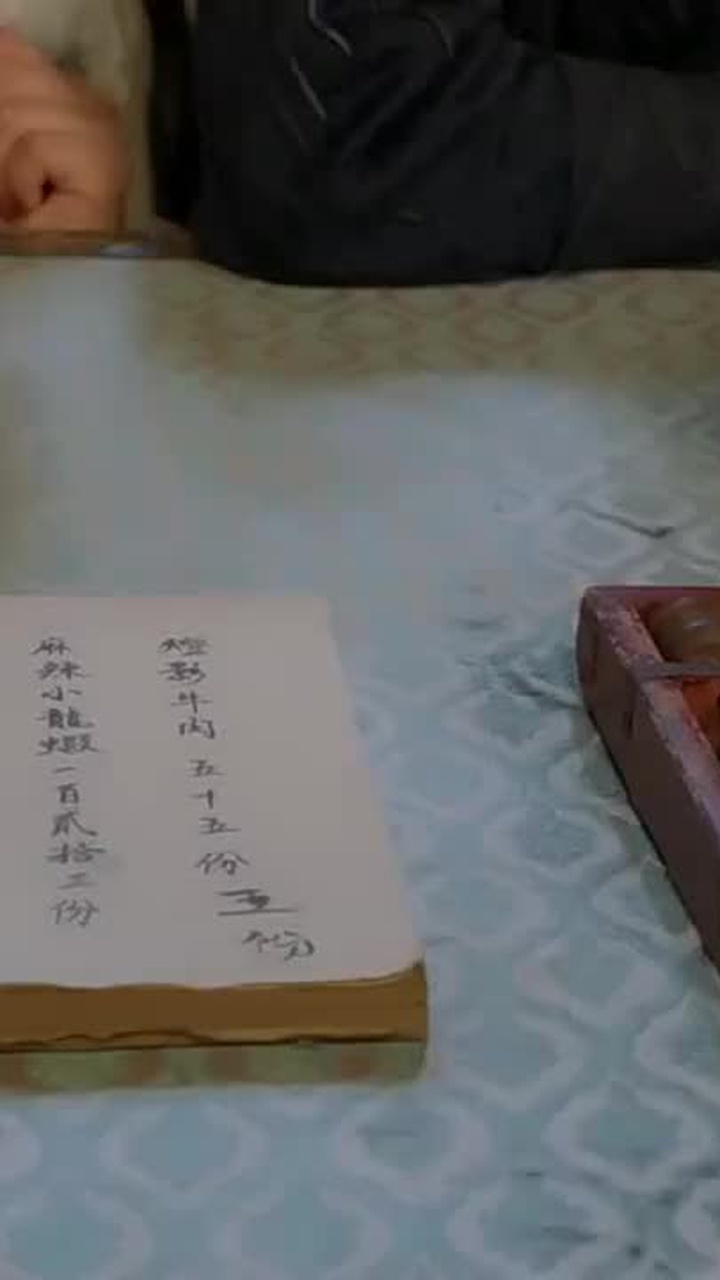 燈影牛肉 五十五份
五份
麻辣小龍蝦一百貳拾二份